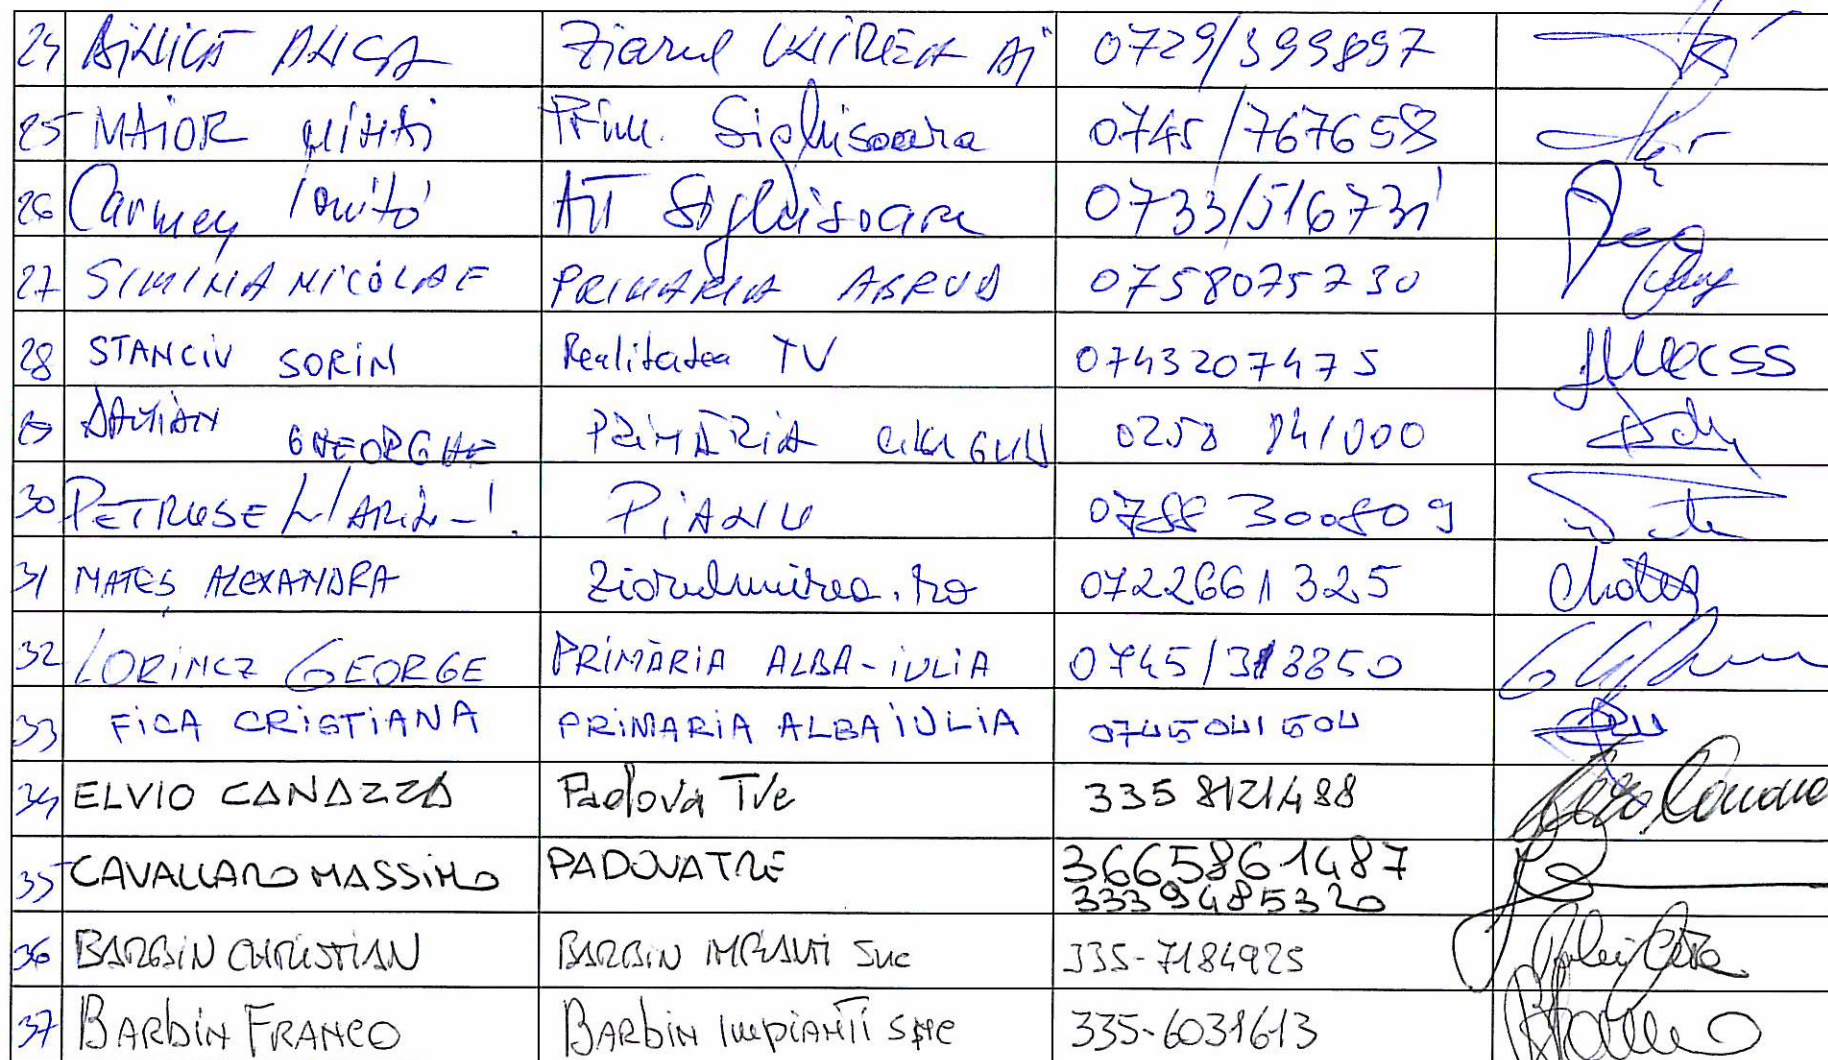 24 AiLiCĂ ANCA Ziarul UNIREA Aj 0729/399897
25 MAiOR MiHAi Prim. Sighisoara 0745/767658
26 Carmen Ioniţă ATT Sighisoara 0733/516731
27 SIMINA NICOLAE PRIMARIA ABRUD 0758075730
28 STANCIU SORIN Realitatea TV 0743207475
29 DAMIAN GHEORGHE PRIMĂRIA 0258
30 PETRUSE MARIN-I. PiANU 0788 300809
31 MATEŞ ALEXANDRA Ziarulunirea.ro 0722661325 Mateş
32 LORINCZ GEORGE PRIMĂRIA ALBA-IULIA 0745/318850
33 FiCA CRiSTiANA PRiMARiA ALBA iULiA 0745041504
34 ELVIO CANAZZA Padova Tve 335 8121488
35 CAVALLARO MASSIMO PADOVATRE 3665861487
3339485320
36 BARBIN CHRISTIAN BARBIN IMPIANTI Snc 335-7184925
37 BARbiN FRANCO BARbiN ImpiANTi snc 335-6031613